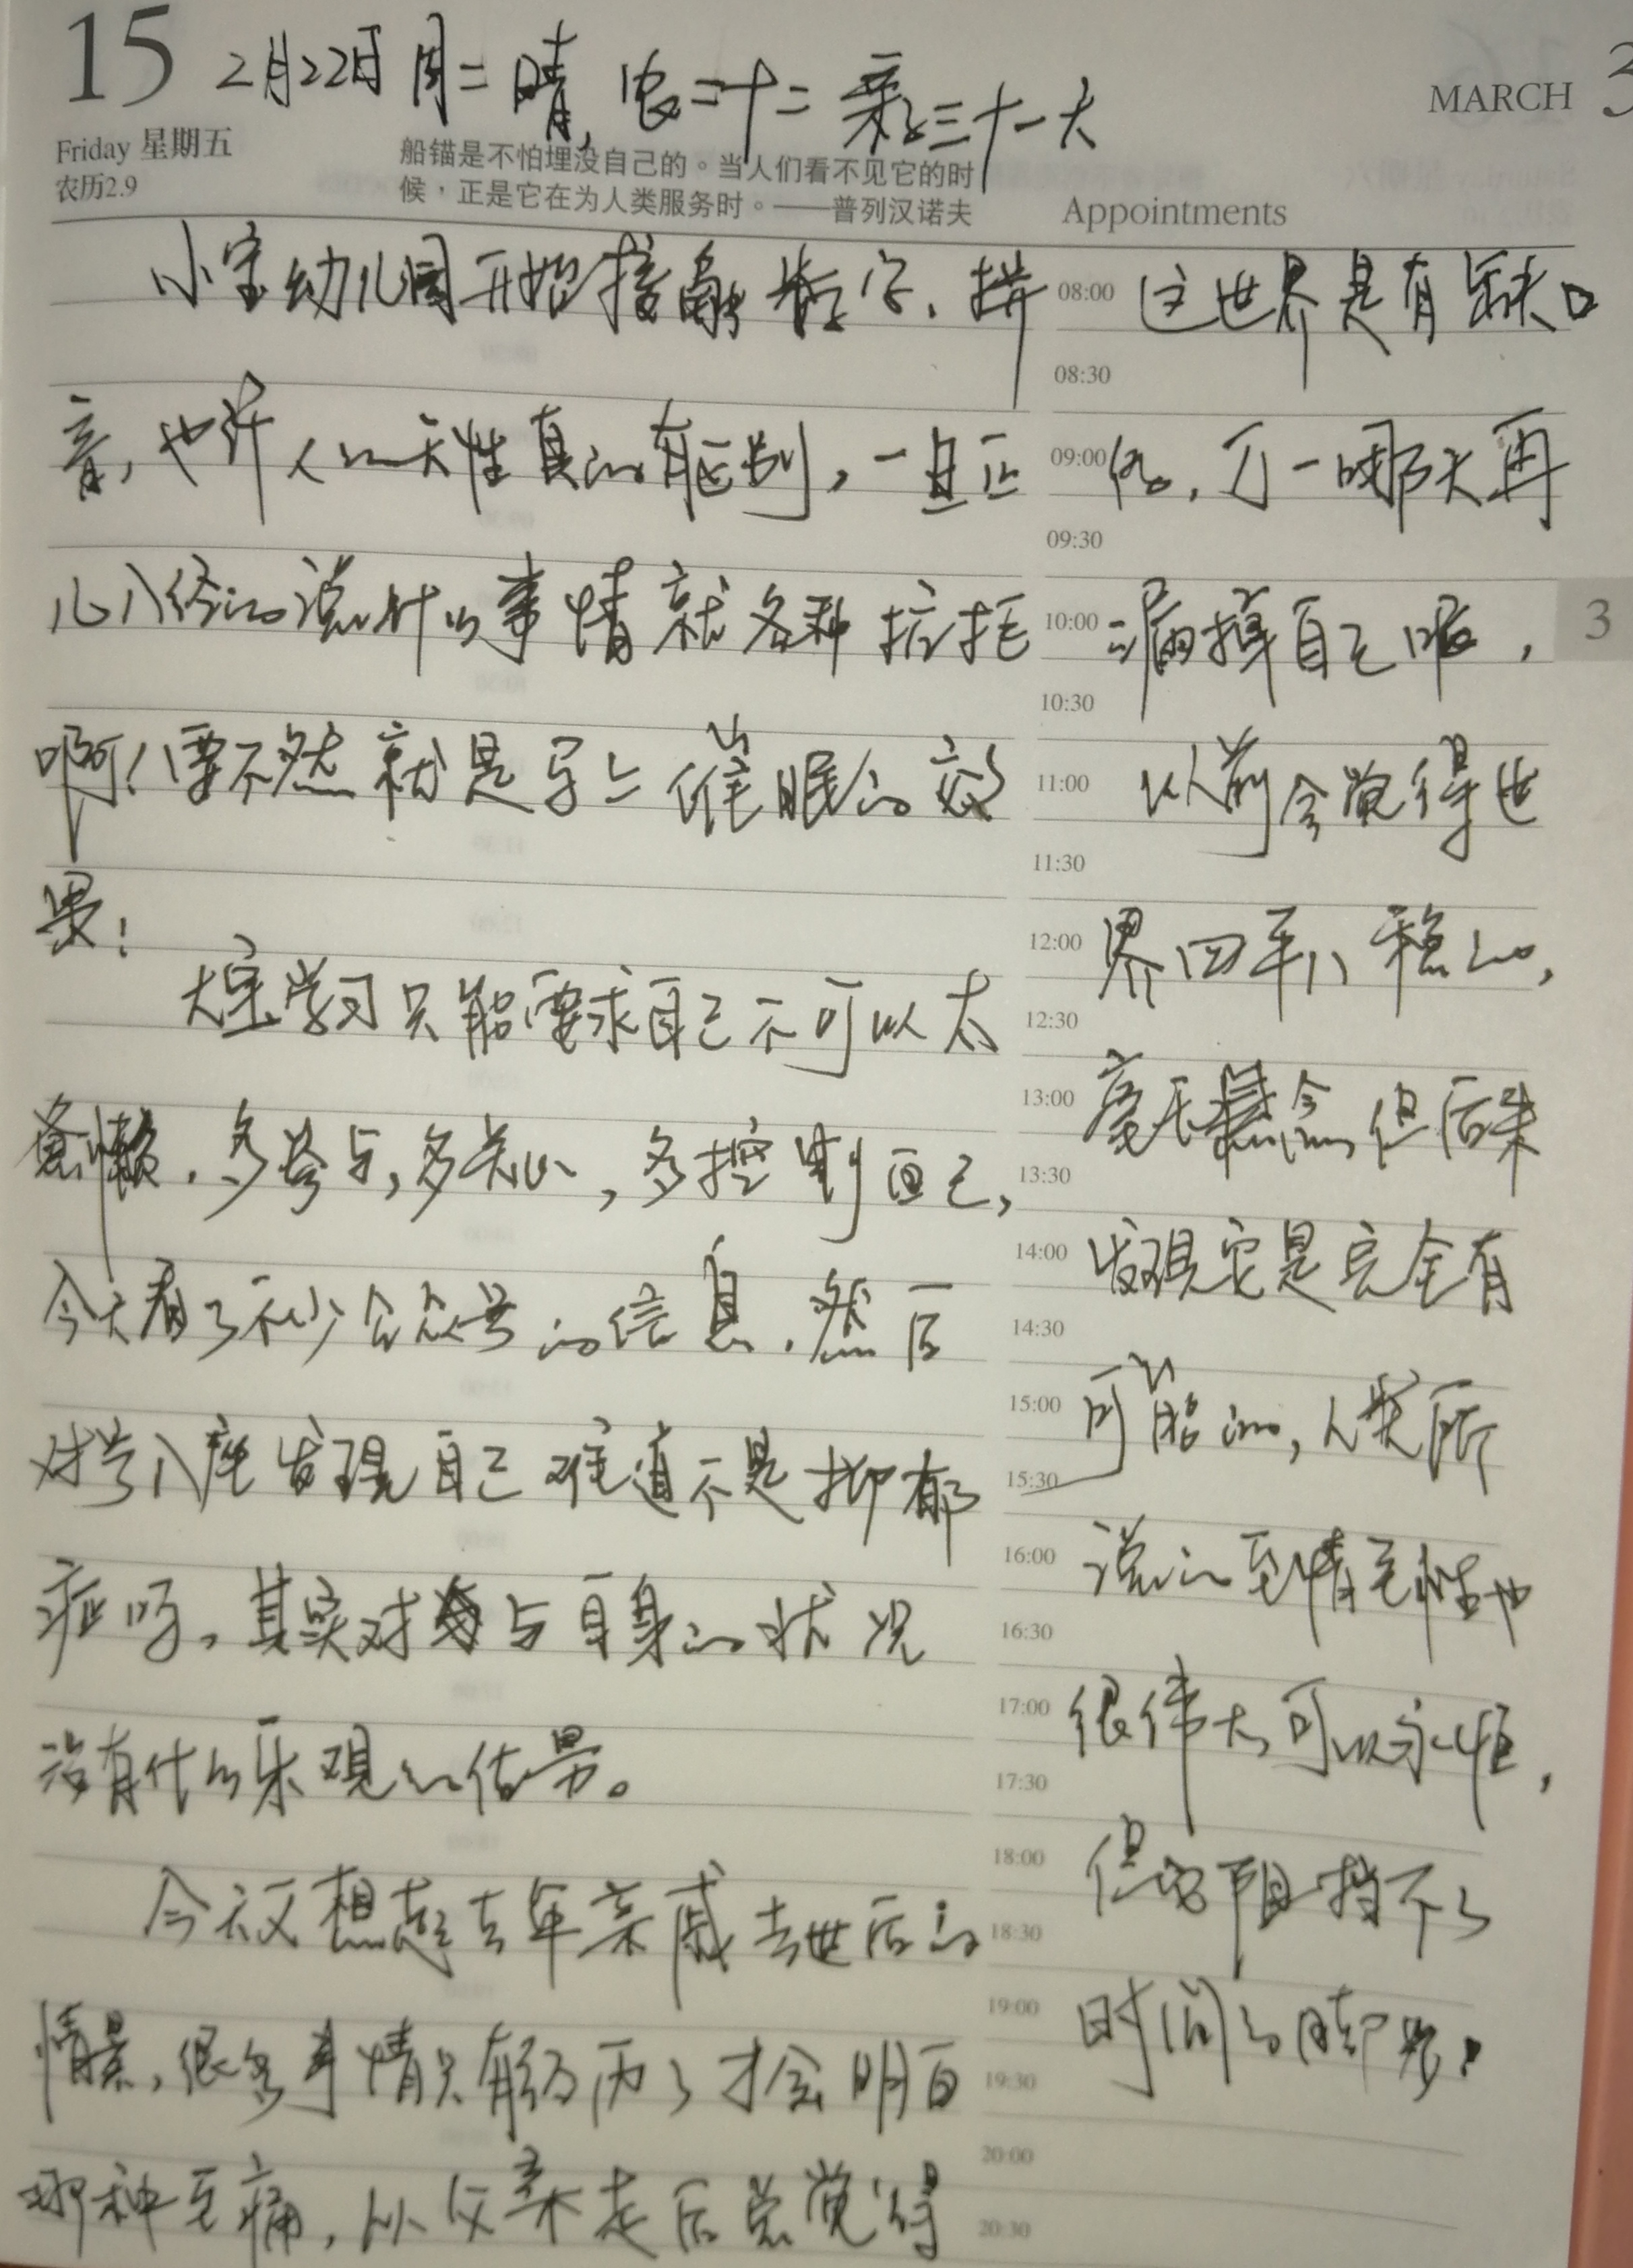 15
2月22日 周二 晴,农二十二 亲子三十一天
MARCH 3
Friday 星期五
农历2.9
船锚是不怕埋没自己的。当人们看不见它的时
候,正是它在为人类服务时。——普列汉诺夫
Appointments
小宝幼儿园开始接触数字、拼
音,也许人的天性真的有区别,一旦正
儿八经的说什么事情就各种抗拒
啊!要不然就是写上催眠的效
果!
大宝学习只能要求自己不可以太
懒,多参与,多关心,多控制自己,
今天看了不少公众号的信息,然后
对号入座发现自己难道不是抑郁
症吗,其实对与自身的状况
没有什么乐观的估量。
今天又想起去年亲戚去世后的
情景,很多事情只有经历了才会明白
那种至痛,从父亲走后总觉得
08:00
08:30
09:00
09:30
10:00
10:30
11:00
11:30
12:00
12:30
13:00
13:30
14:00
14:30
15:00
15:30
16:00
16:30
17:00
17:30
18:00
18:30
19:00
19:30
20:00
20:30
这世界是有缺口
的,万一哪天再
漏掉自己呢,
以前会觉得世
界四平八稳的,
毫无悬念,但后来
发现它是完全有
可能的,人类所
说的至情至性也
很伟大,可以永恒,
但它阻挡不了
时间的脚步!
3